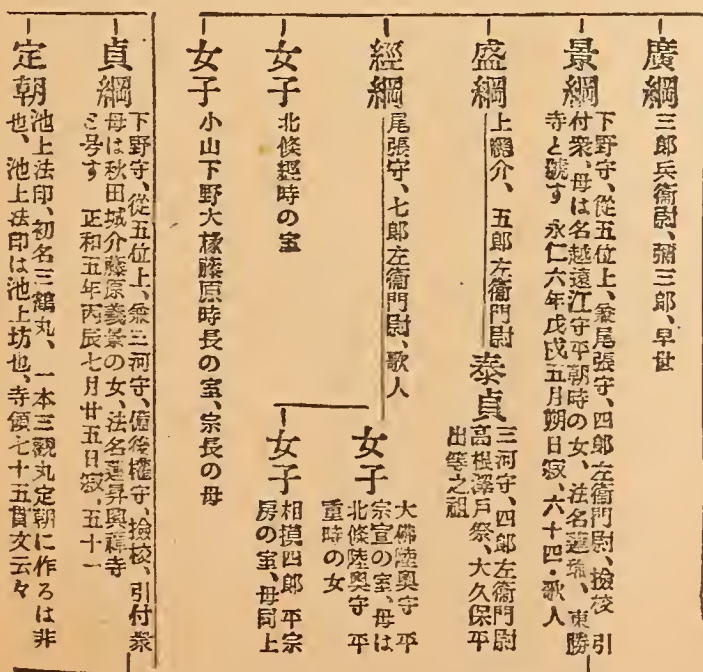 廣綱
三郎兵衞尉、彌三郎、早世
景綱
下野守、從五位上、兼尾張守、四郎左衞門尉、撿挍 引
付衆、母は名越遠江守平朝時の女、法名蓮瑜、東勝
寺と號す 永仁六年戊戌五月朔日寂、六十四・歌人
盛綱
上總介、五郎左衞門尉
泰貞
三河守、四郎左衞門尉
高根澤戸祭、大久保平
出等之祖
經綱
尾張守、七郎左衞門尉、歌人
女子
大佛陸奧守 平
宗宣の室、母は
北條陸奧守 平
重時の女
女子
相摸四郎 平宗
房の室、母同上
女子
北條經時の室
女子
小山下野大掾藤原時長の室、宗長の母
貞綱
下野守、從五位上、兼三河守、備後權守、撿挍、引付衆
母は秋田城介藤原義景の女、法名蓮昇興禪寺
と号す 正和五年丙辰七月廿五日寂、五十一
定朝
池上法印、初名三鶴丸、一本三觀丸定朝に作るは非
也、池上法印は池上坊也、寺領七十五貫文云々